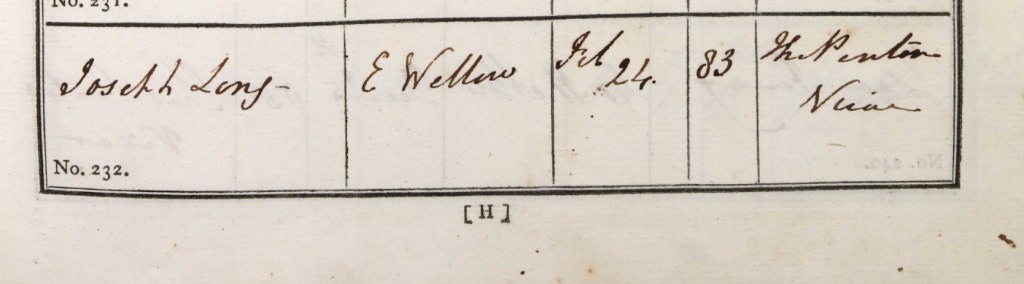 No. 231.
Joseph Long
E Wellow
Feb
24.
83
Vicar
No. 232.
[H]
No. 240.